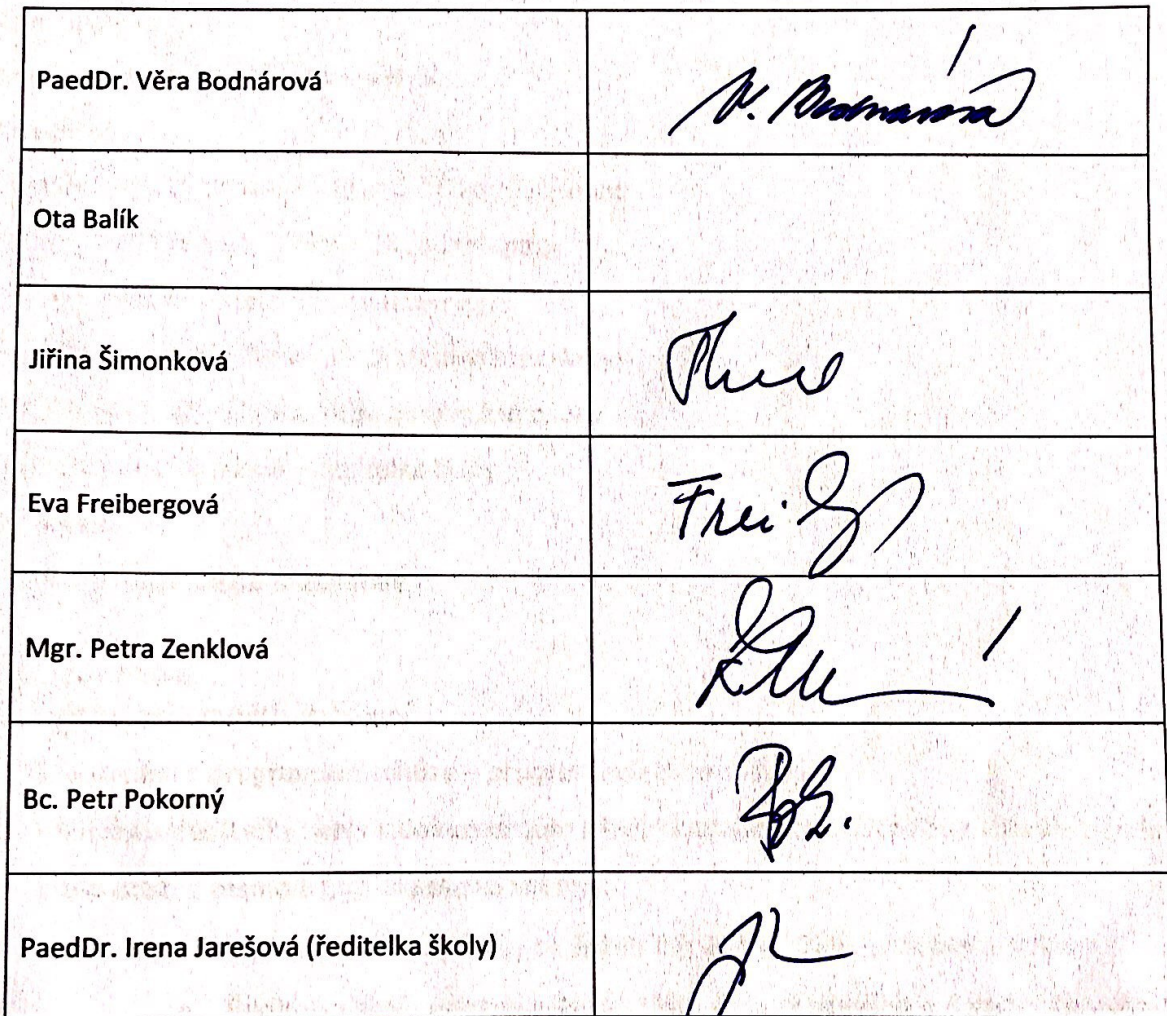 PaedDr. Věra Bodnárová V. Bodnárová
Ota Balík
Jiřina Šimonková
Eva Freibergová
Mgr. Petra Zenklová
Bc. Petr Pokorný
PaedDr. Irena Jarešová (ředitelka školy)